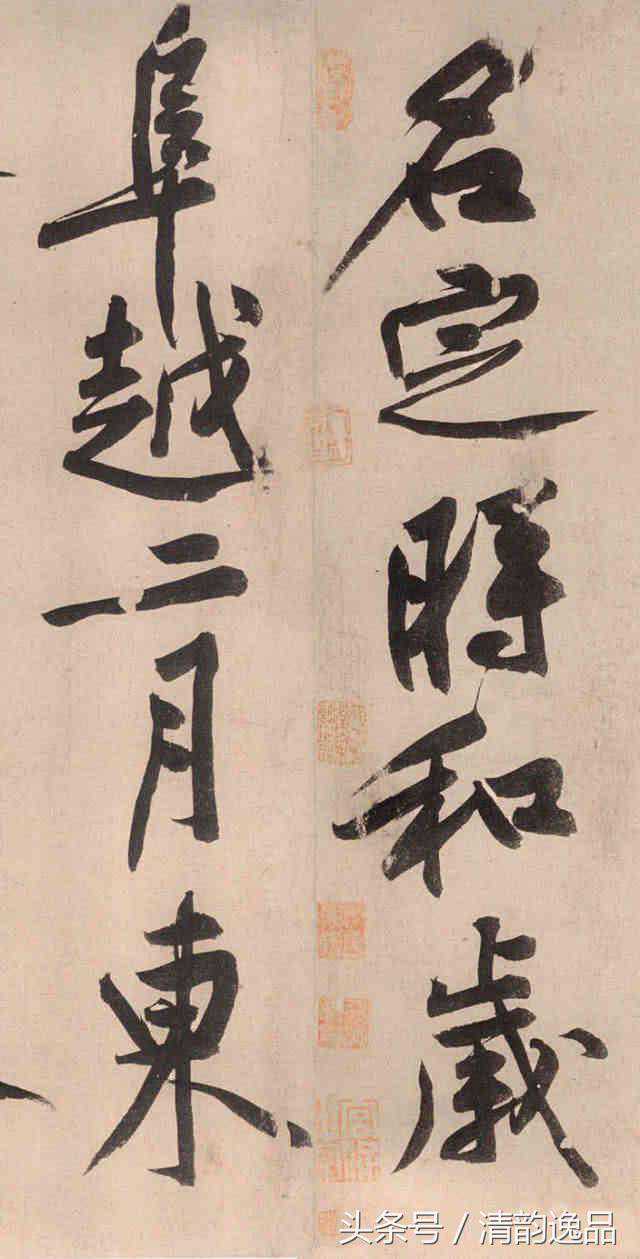 名定時和歲
阜越二月東
头条号 / 清韵逸品